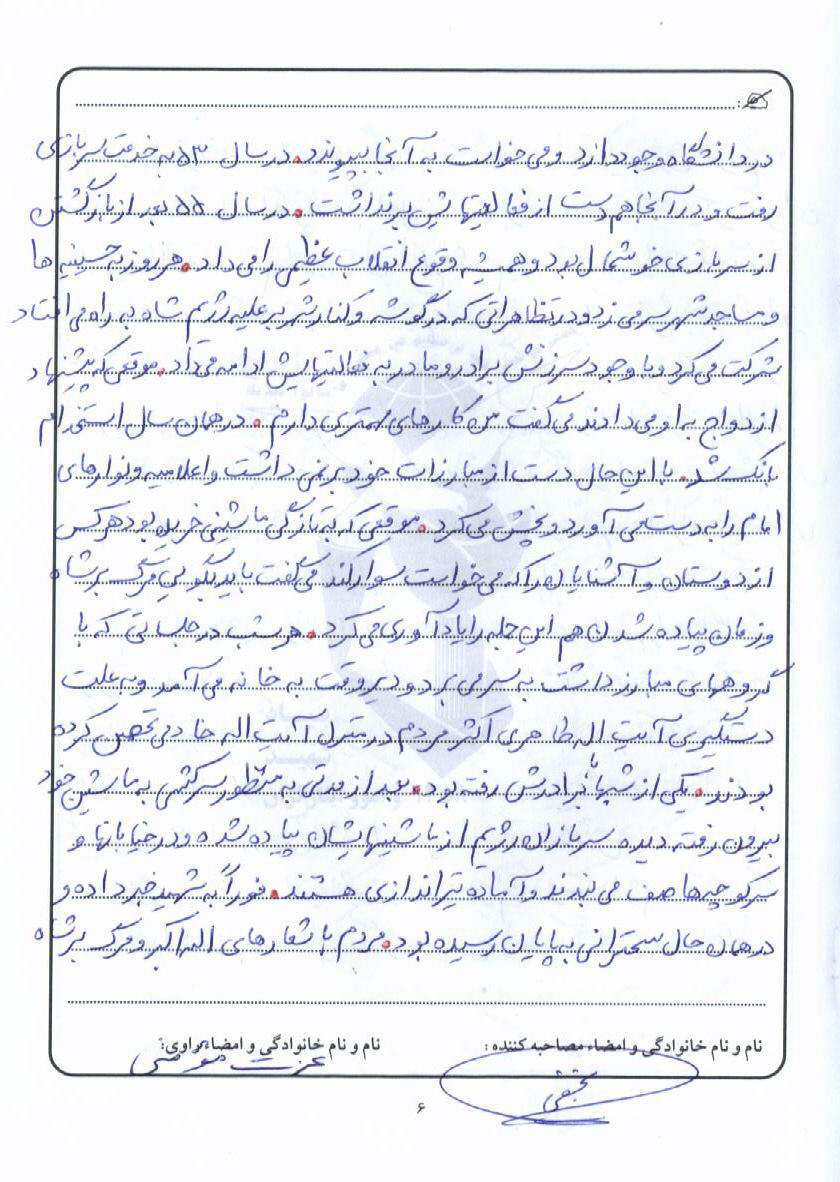 در دانشگاه وجود دارد و می خواست به آنجا بپیوندد. در سال ۵۳ به خدمت سربازی
رفت و در آنجا هم دست از فعالیتهایش برنداشت. در سال ۵۵ بعد از بازگشتن
از سربازی خوشحال بود و همیشه وقوع انقلاب عظیمی را می داد. هر روز به حسینیه ها
و مساجد شهر سر می زد و در تظاهراتی که در گوشه و کنار شهر بر علیه رژیم شاه به راه می افتاد
شرکت می کرد و با وجود سرزنش برادر و مادر به فعالیتهایش ادامه می داد. موقعی که پیشنهاد
ازدواج به او می دادند می گفت من کارهای بهتری دارم. در همان سال استخدام
بانک شد. با این حال دست از مبارزات خود بر نمی داشت و اعلامیه و نوارهای
امام را به دست می آورد و پخش می کرد. موقعی که به تازگی ماشینی خریده بود هر کس
از دوستان و آشنایان را که می خواست سوار کند می گفت باید بگویی مرگ بر شاه
و زمان پیاده شدن هم این جمله را یادآوری می کرد. هر شب در جلساتی که با
گروههای مبارز داشت به سر می برد و دیر وقت به خانه می آمد و به علت
دستگیری آیت اله طاهری اکثر مردم در منزل آیت اله خادمی تحصن کرده
بودند. یکی از شبها با برادرش رفته بود. بعد از مدتی به منظور سرکشی به ماشین خود
بیرون رفته دیده سربازان رژیم از ماشینهایشان پیاده شده و در خیابانها و
سر کوچه ها صف می بندند و آماده تیراندازی هستند. فوراً به شهید خبر داده و
در همان حال سخنرانی به پایان رسیده بود. مردم با شعارهای اله اکبر و مرگ بر شاه
نام و نام خانوادگی و امضاء مصاحبه کننده : نام و نام خانوادگی و امضاء راوی:
عزت مؤمنی
۶